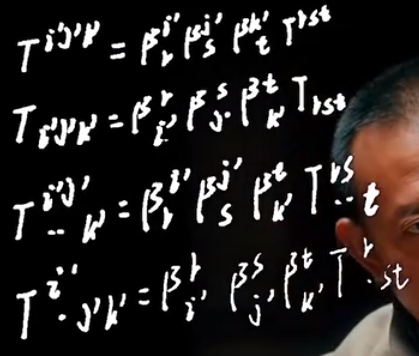 T^{i'j'k'} = β^{i'}_r β^{j'}_s β^{k'}_t T^{rst}
T_{i'j'k'} = β^r_{i'} β^s_{j'} β^t_{k'} T_{rst}
T^{i'j'}_{··k'} = β^{i'}_r β^{j'}_s β^t_{k'} T^{rs}_{··t}
T^{i'}_{·j'k'} = β^r_{i'} β^s_{j'} β^t_{k'} T^r_{·st}